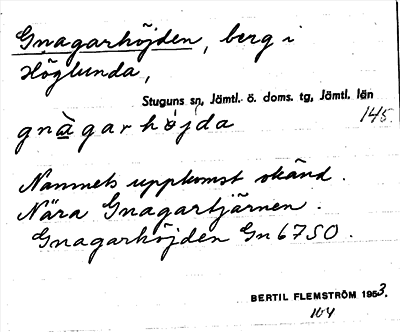 Gnagarhöjden, berg i
Höglunda,
Stuguns sn, Jämtl. ö. doms. tg, Jämtl. län
145
gnàgarhöjda
Namnets uppkomst okänd.
Nära Gnagartjärnen.
Gnagarhöjden Gn 6750.
BERTIL FLEMSTRÖM 1953.
104